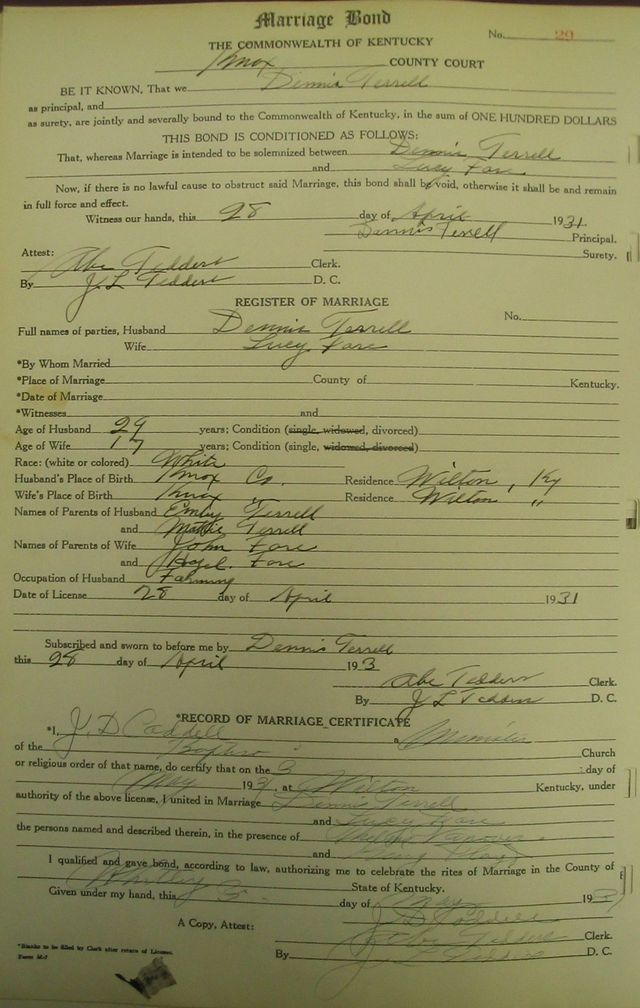 Marriage Bond
No. 29
THE COMMONWEALTH OF KENTUCKY
Knox COUNTY COURT
BE IT KNOWN, That we Dennis Terrell
as principal, and
as surety, are jointly and severally bound to the Commonwealth of Kentucky, in the sum of ONE HUNDRED DOLLARS
THIS BOND IS CONDITIONED AS FOLLOWS:
That, whereas Marriage is intended to be solemnized between Dennis Terrell
and Lucy Fore
Now, if there is no lawful cause to obstruct said Marriage, this bond shall be void, otherwise it shall be and remain
in full force and effect.
Witness our hands, this 28 day of April 1931.
Dennis Terrell Principal.
Surety.
Attest:
Abe Tedders Clerk.
By J. L. Tedders D. C.
REGISTER OF MARRIAGE
No.
Full names of parties, Husband Dennis Terrell
Wife Lucy Fore
*By Whom Married
*Place of Marriage County of Kentucky.
*Date of Marriage
*Witnesses and
Age of Husband 29 years; Condition (single, widowed, divorced)
Age of Wife 17 years; Condition (single, widowed, divorced)
Race: (white or colored) White
Husband's Place of Birth Knox Co. Residence Wilton, Ky
Wife's Place of Birth Knox " Residence Wilton "
Names of Parents of Husband Terrell
and Mattie Terrell
Names of Parents of Wife John Fore
and Fore
Occupation of Husband Farming
Date of License 28 day of April 1931
Subscribed and sworn to before me by Dennis Terrell
this 28 day of April 193
Abe Tedders Clerk.
By J L Tedders D. C.
*RECORD OF MARRIAGE CERTIFICATE
*I, J. D. Caddell a Minister
of the Baptist Church
or religious order of that name, do certify that on the 3 day of
May 193, at Wilton Kentucky, under
authority of the above license, I united in Marriage Dennis Terrell
and Lucy Fore
the persons named and described therein, in the presence of
and
I qualified and gave bond, according to law, authorizing me to celebrate the rites of Marriage in the County of
Whitley State of Kentucky.
Given under my hand, this 3 day of May 193
J. D. Caddell
A Copy, Attest: Abe Tedders Clerk.
By J L Tedders D. C.
*Blanks to be filled by Clerk after return of License.
Form M-7